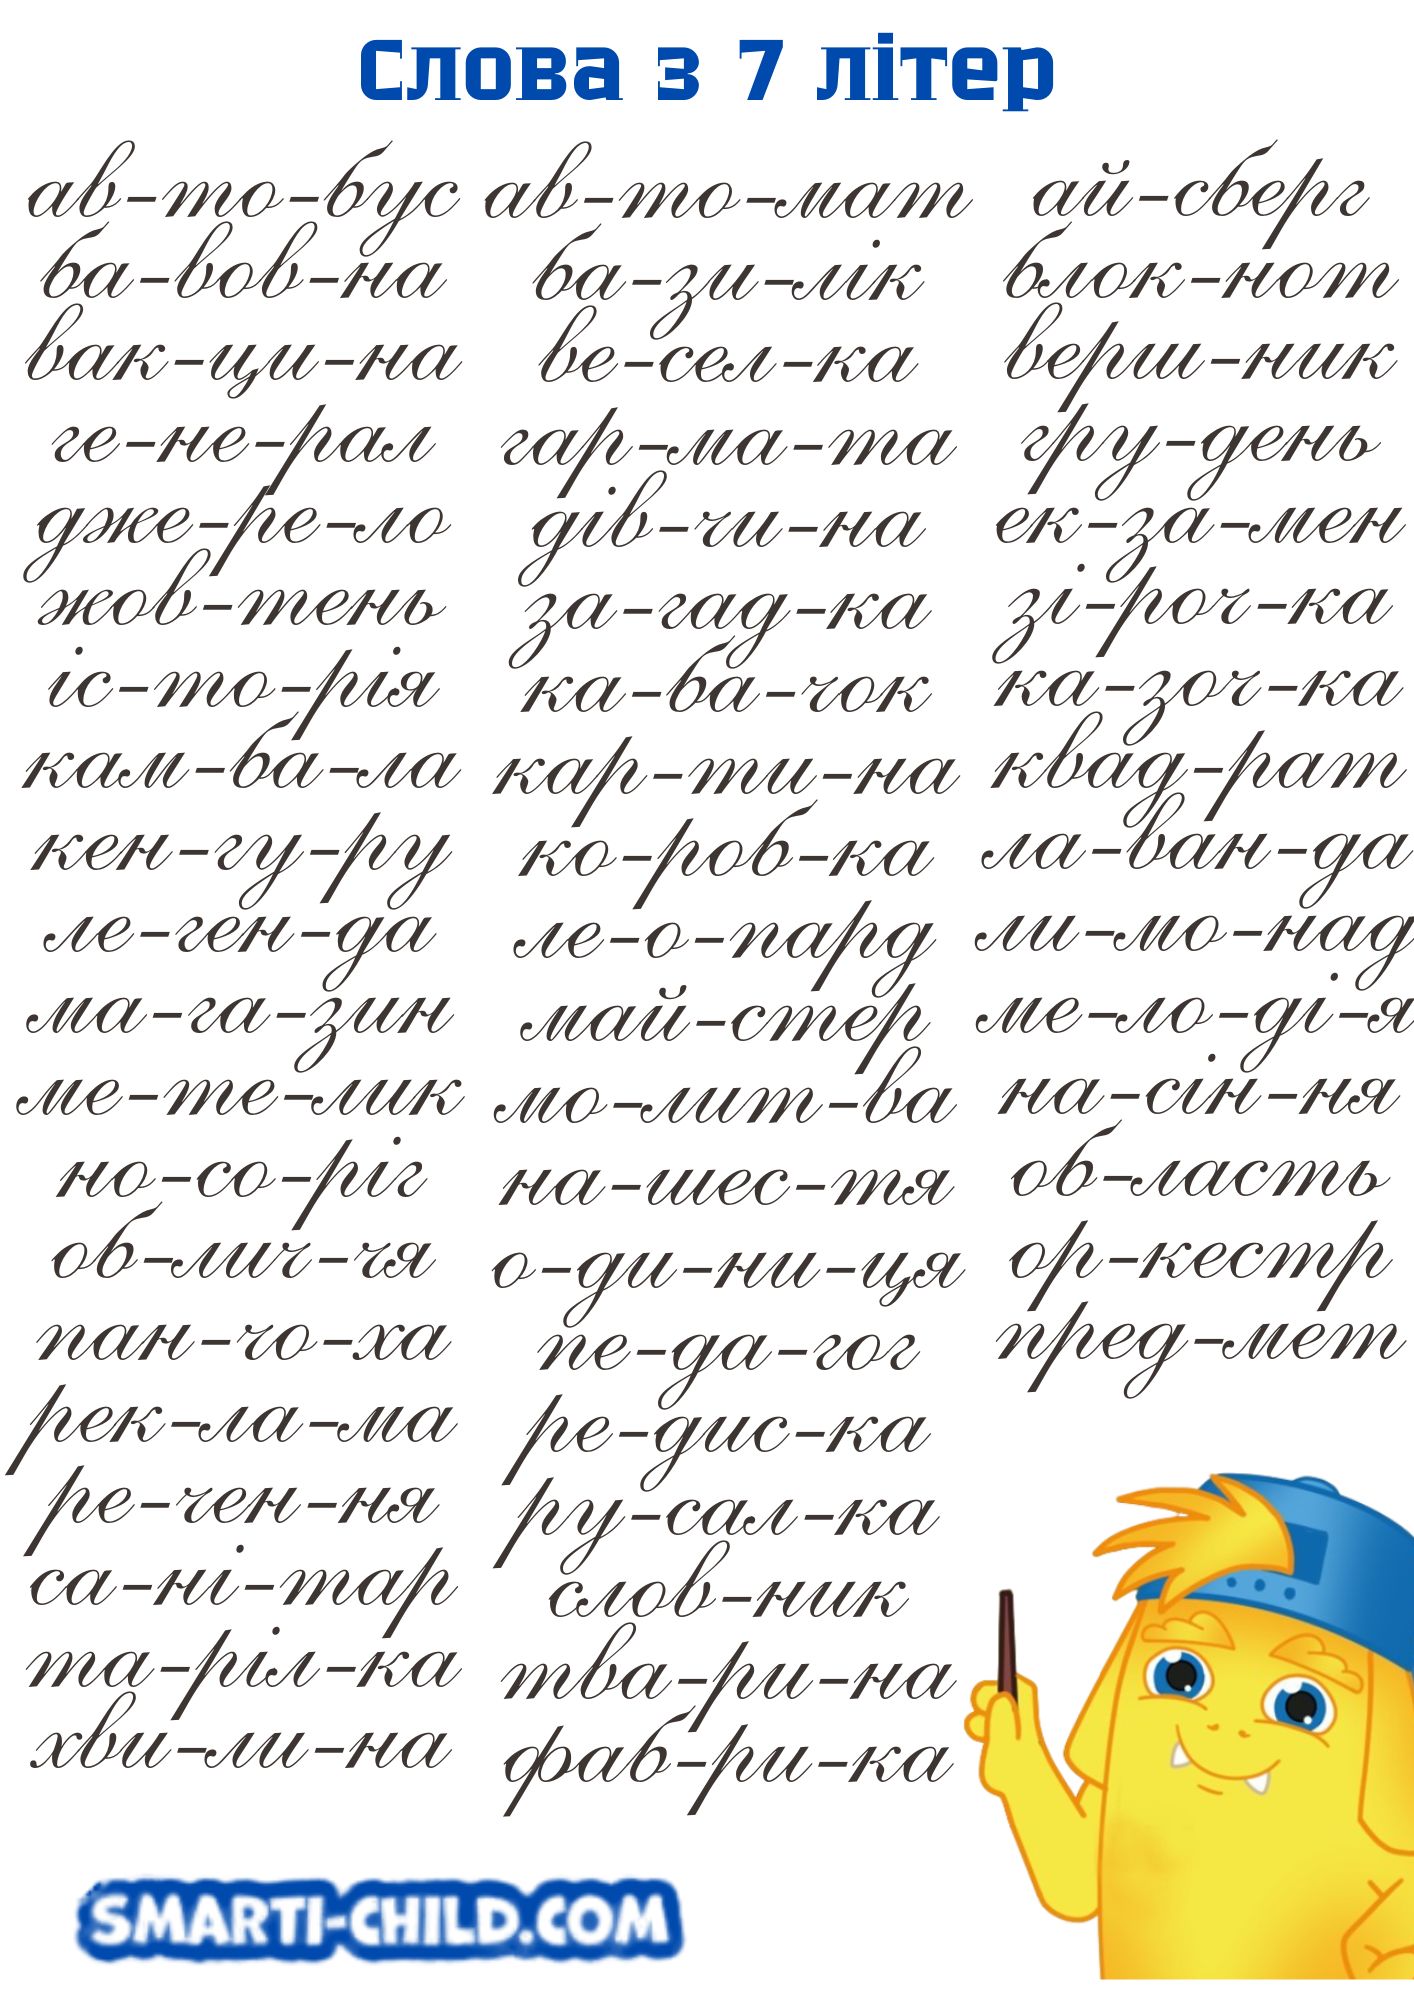 Слова з 7 літер
ав-то-бус ав-то-мат ай-сберг
ба-вов-на ба-зи-лік блок-нот
вак-ци-на ве-сел-ка верш-ник
ге-не-рал гар-ма-та гру-день
дже-ре-ло дів-чи-на ек-за-мен
жов-тень за-гад-ка зі-роч-ка
іс-то-рія ка-ба-чок ка-зоч-ка
кам-ба-ла кар-ти-на квад-рат
кен-гу-ру ко-роб-ка ла-ван-да
ле-ген-да ле-о-пард ли-мо-над
ма-га-зин май-стер ме-ло-ді-я
ме-те-лик мо-лит-ва на-сін-ня
но-со-ріг на-шес-тя об-ласть
об-лич-чя о-ди-ни-ця ор-кестр
пан-чо-ха пе-да-гог пред-мет
рек-ла-ма ре-дис-ка
ре-чен-ня ру-сал-ка
са-ні-тар слов-ник
та-ріл-ка тва-ри-на
хви-ли-на фаб-ри-ка
SMARTI-CHILD.COM